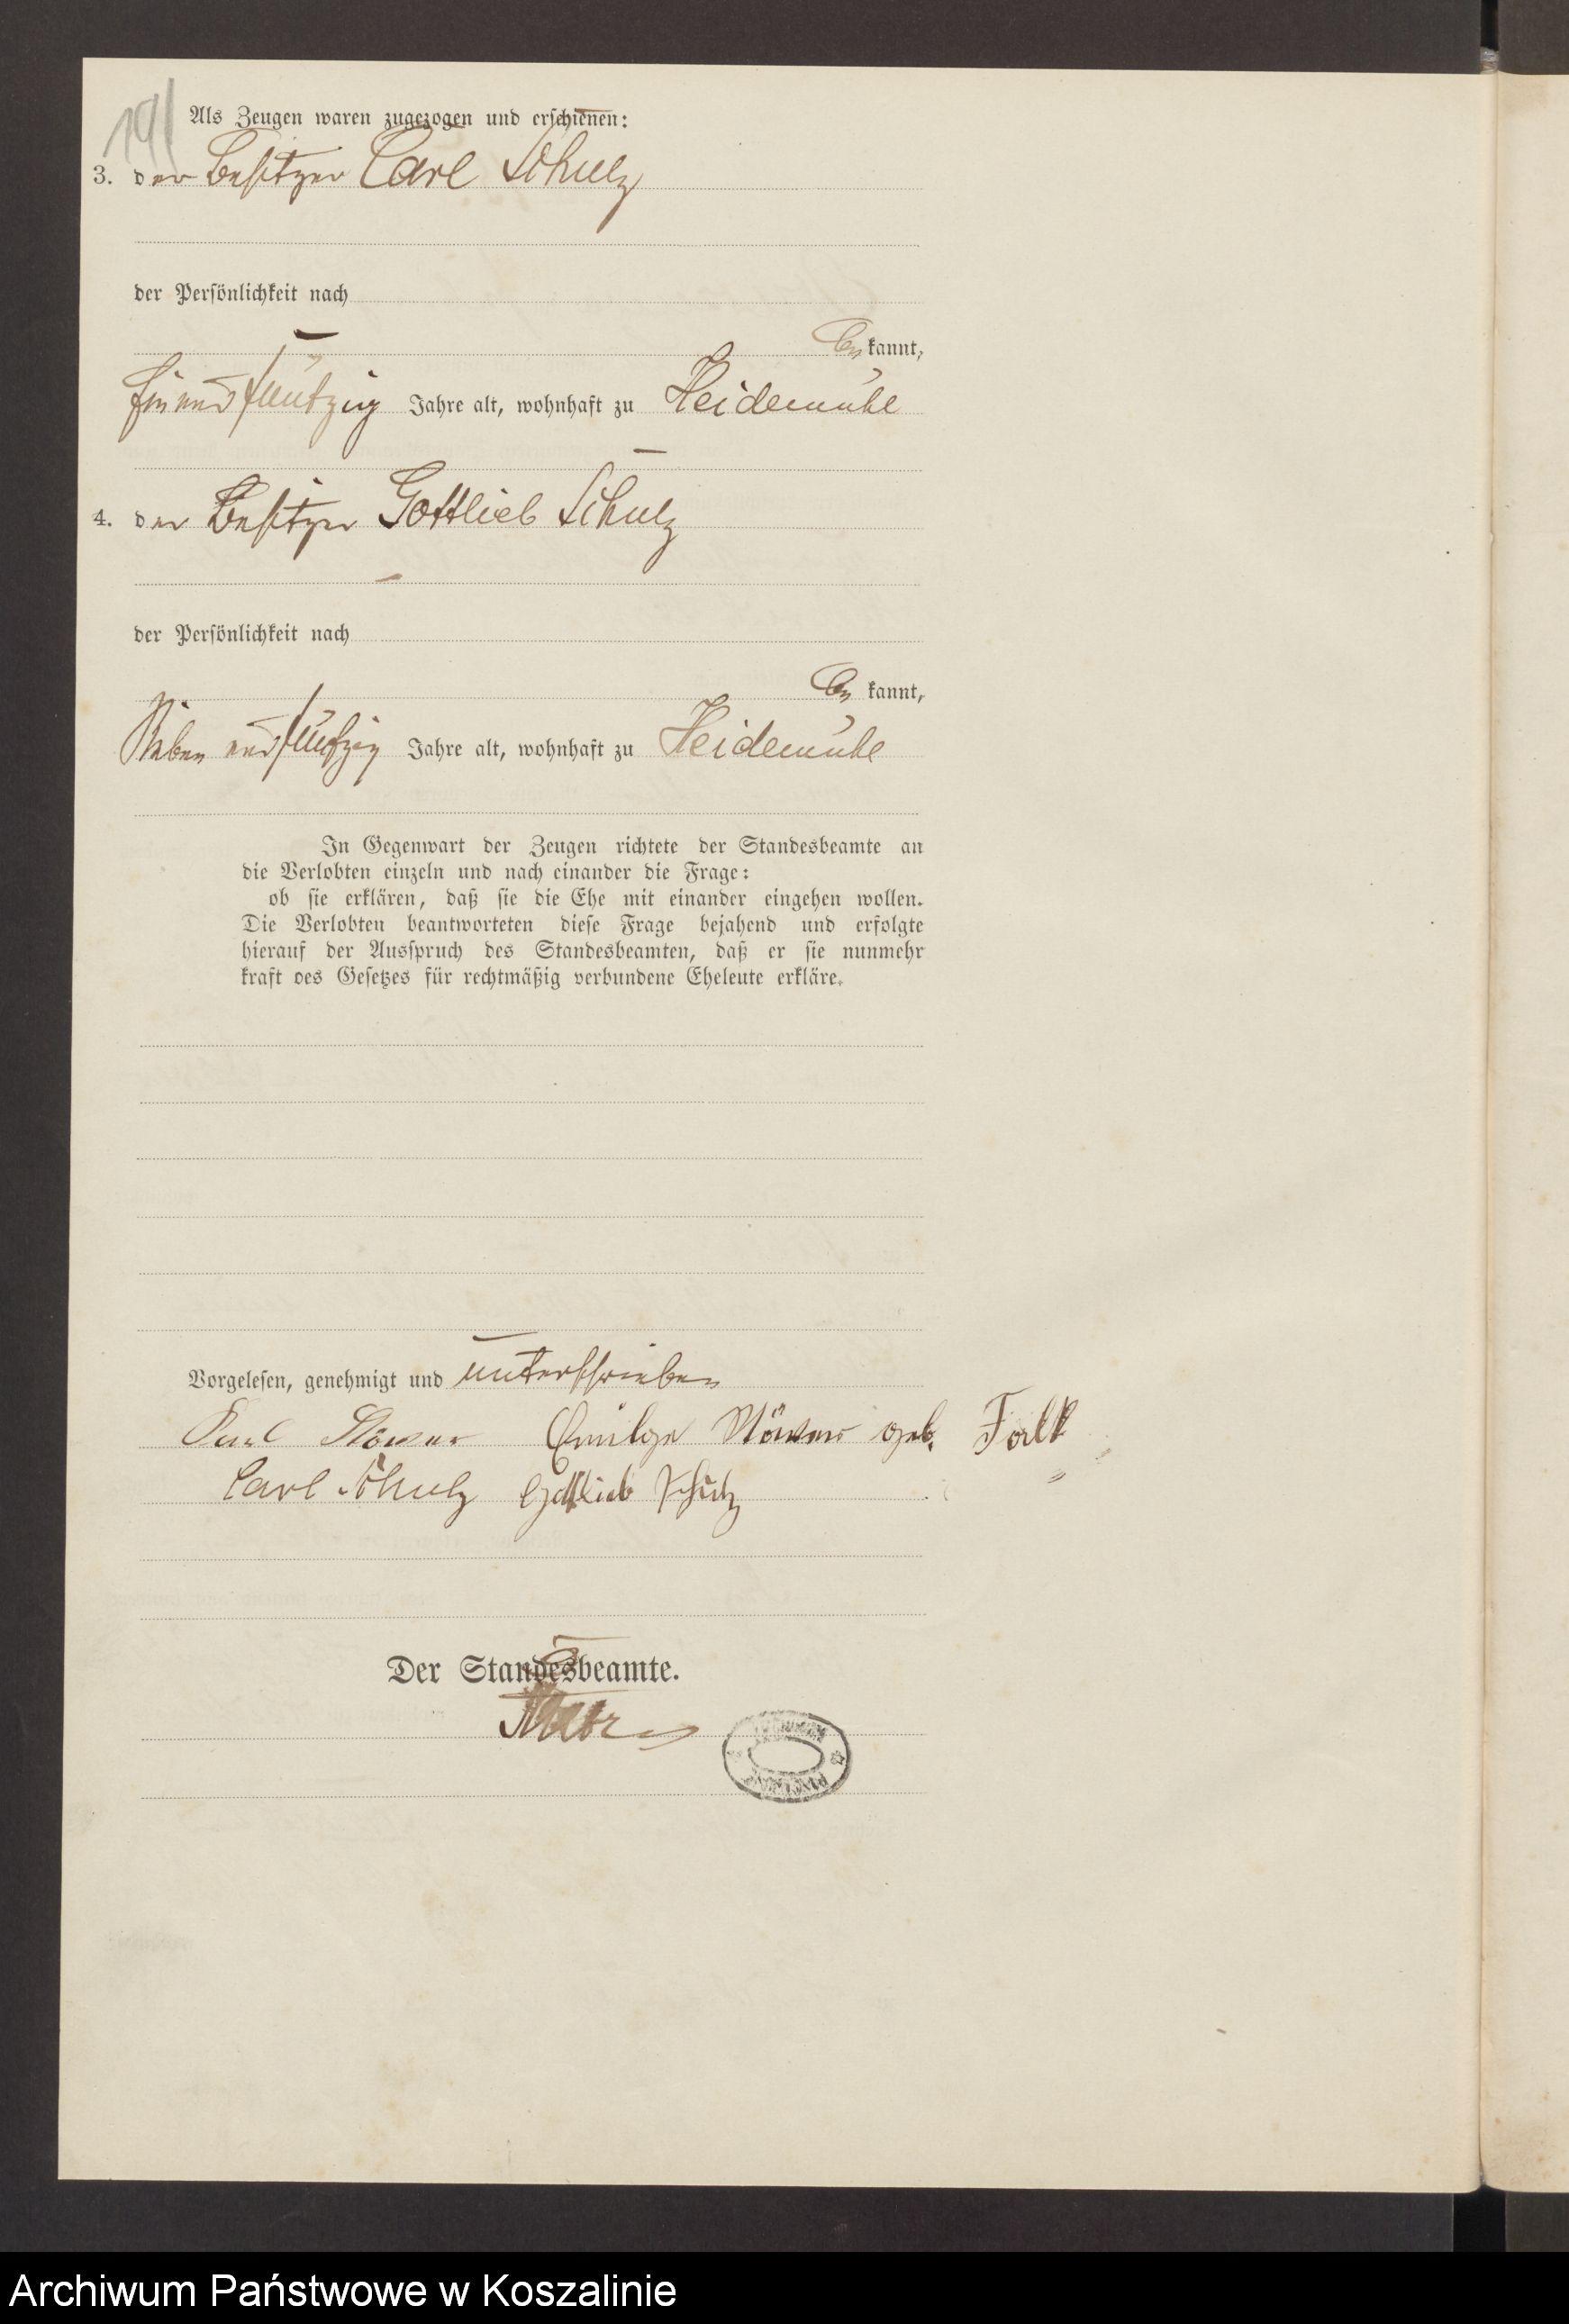 191
Als Zeugen waren zugezogen und erschienen:
3. der Besitzer Carl Schulz
der Persönlichkeit nach
be kannt,
ein und fünfzig Jahre alt, wohnhaft zu Heidemühl
4. der Besitzer Gottlieb Schulz
der Persönlichkeit nach
be kannt,
sieben und fünfzig Jahre alt, wohnhaft zu Heidemühl
In Gegenwart der Zeugen richtete der Standesbeamte an
die Verlobten einzeln und nach einander die Frage:
ob sie erklären, daß sie die Ehe mit einander eingehen wollen.
Die Verlobten beantworteten diese Frage bejahend und erfolgte
hierauf der Ausspruch des Standesbeamten, daß er sie nunmehr
kraft des Gesetzes für rechtmäßig verbundene Eheleute erkläre.
Vorgelesen, genehmigt und unterschrieben
geb. Falk
Carl Schulz Gottlieb Schulz
Der Standesbeamte.
Archiwum Państwowe w Koszalinie